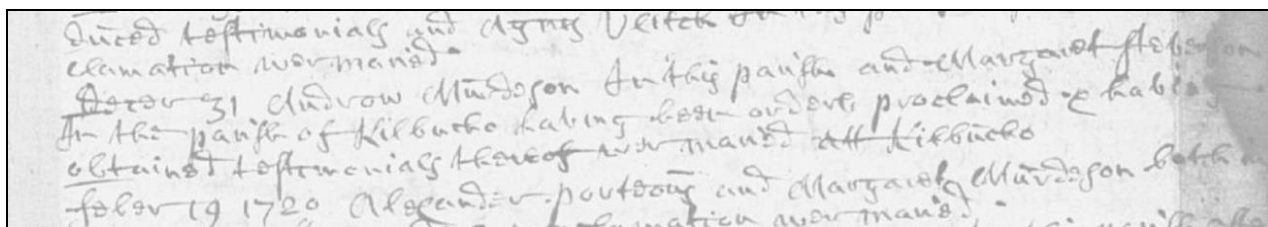 duced testimonials and Agnes Veitch
clamation wer maried
Decer 31 Androw Murdeson In this parish and Margaret Stevenson
In the parish of Kilbucho having been orderli proclaimed & having
obtained testimonials thereof wer maried att Kilbucho
feber 19 1720 Alexander porteous and Margaret Murdeson both in
clamation wer maried